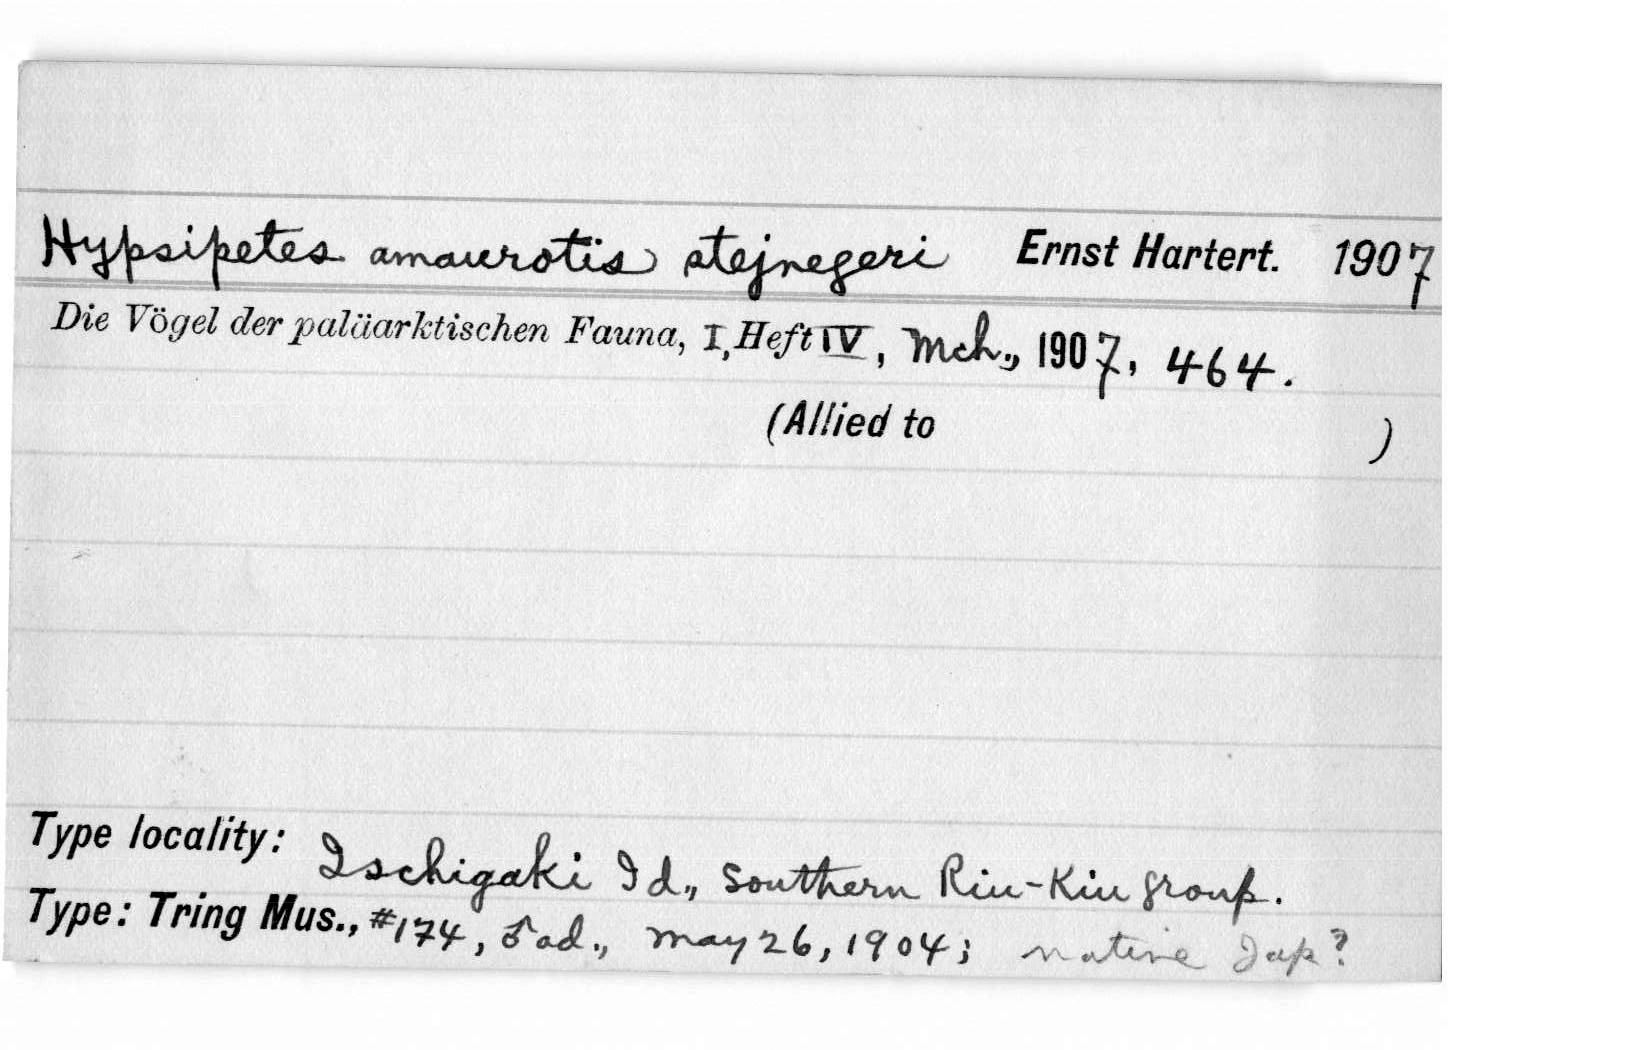 Hypsipetes amaurotis stejnegeri Ernst Hartert. 1907
Die Vögel der paläarktischen Fauna, I, Heft IV, Mch., 1907, 464.
(Allied to )
Type locality: Ischigaki Id., Southern Riu-Kiu group.
Type: Tring Mus., #174, ♂ ad., May 26, 1904; native Jap?